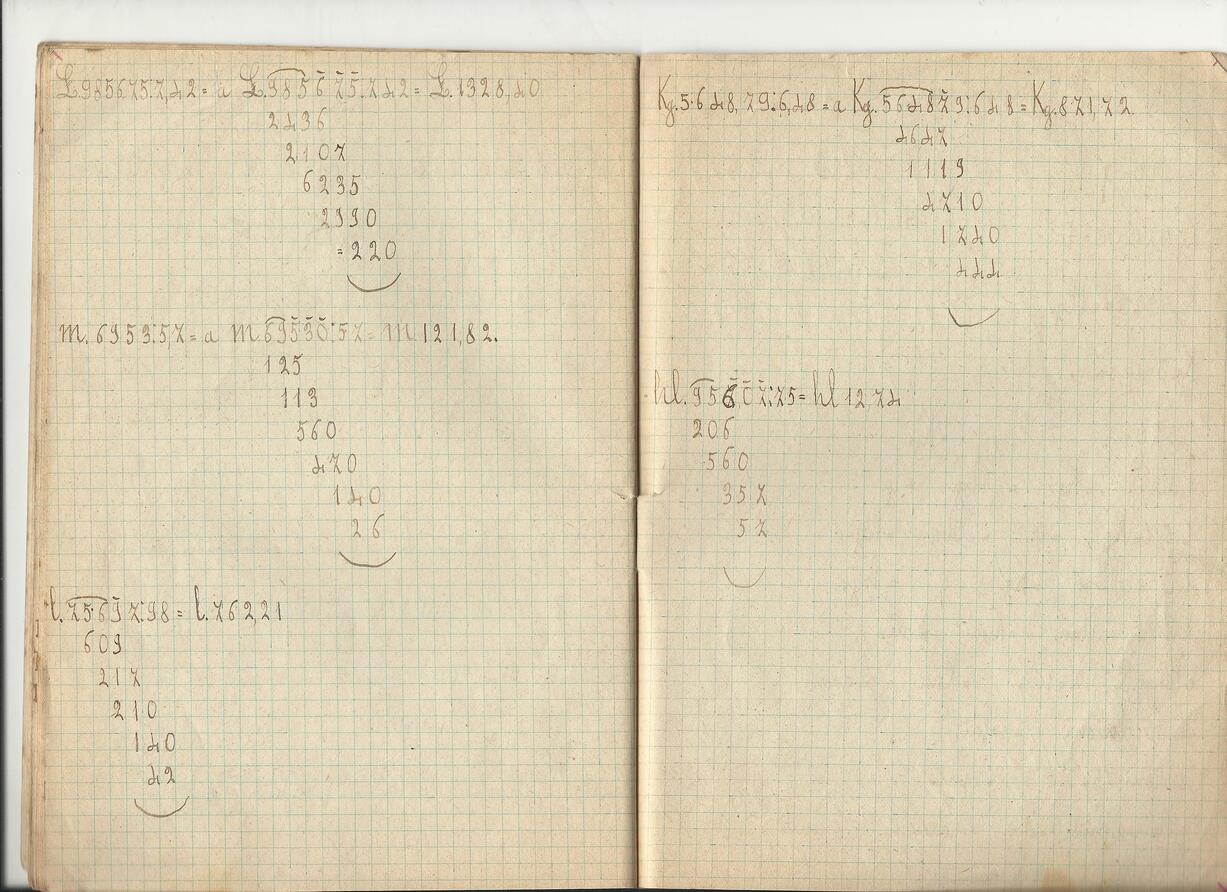 £.985675:7,42= a £.985675:742= £.1328,40
2436
2107
6235
2990
=220
m.6953:5,7= a m.69530:57= m.121,82.
125
113
560
470
140
26
l.75697:98= l.762,21
609
217
210
140
42
Kg.5648,79:6,48= a Kg.564879:648= Kg.871,72
4647
1119
4710
1740
444
hl.95607:75= hl 1274
206
560
357
57